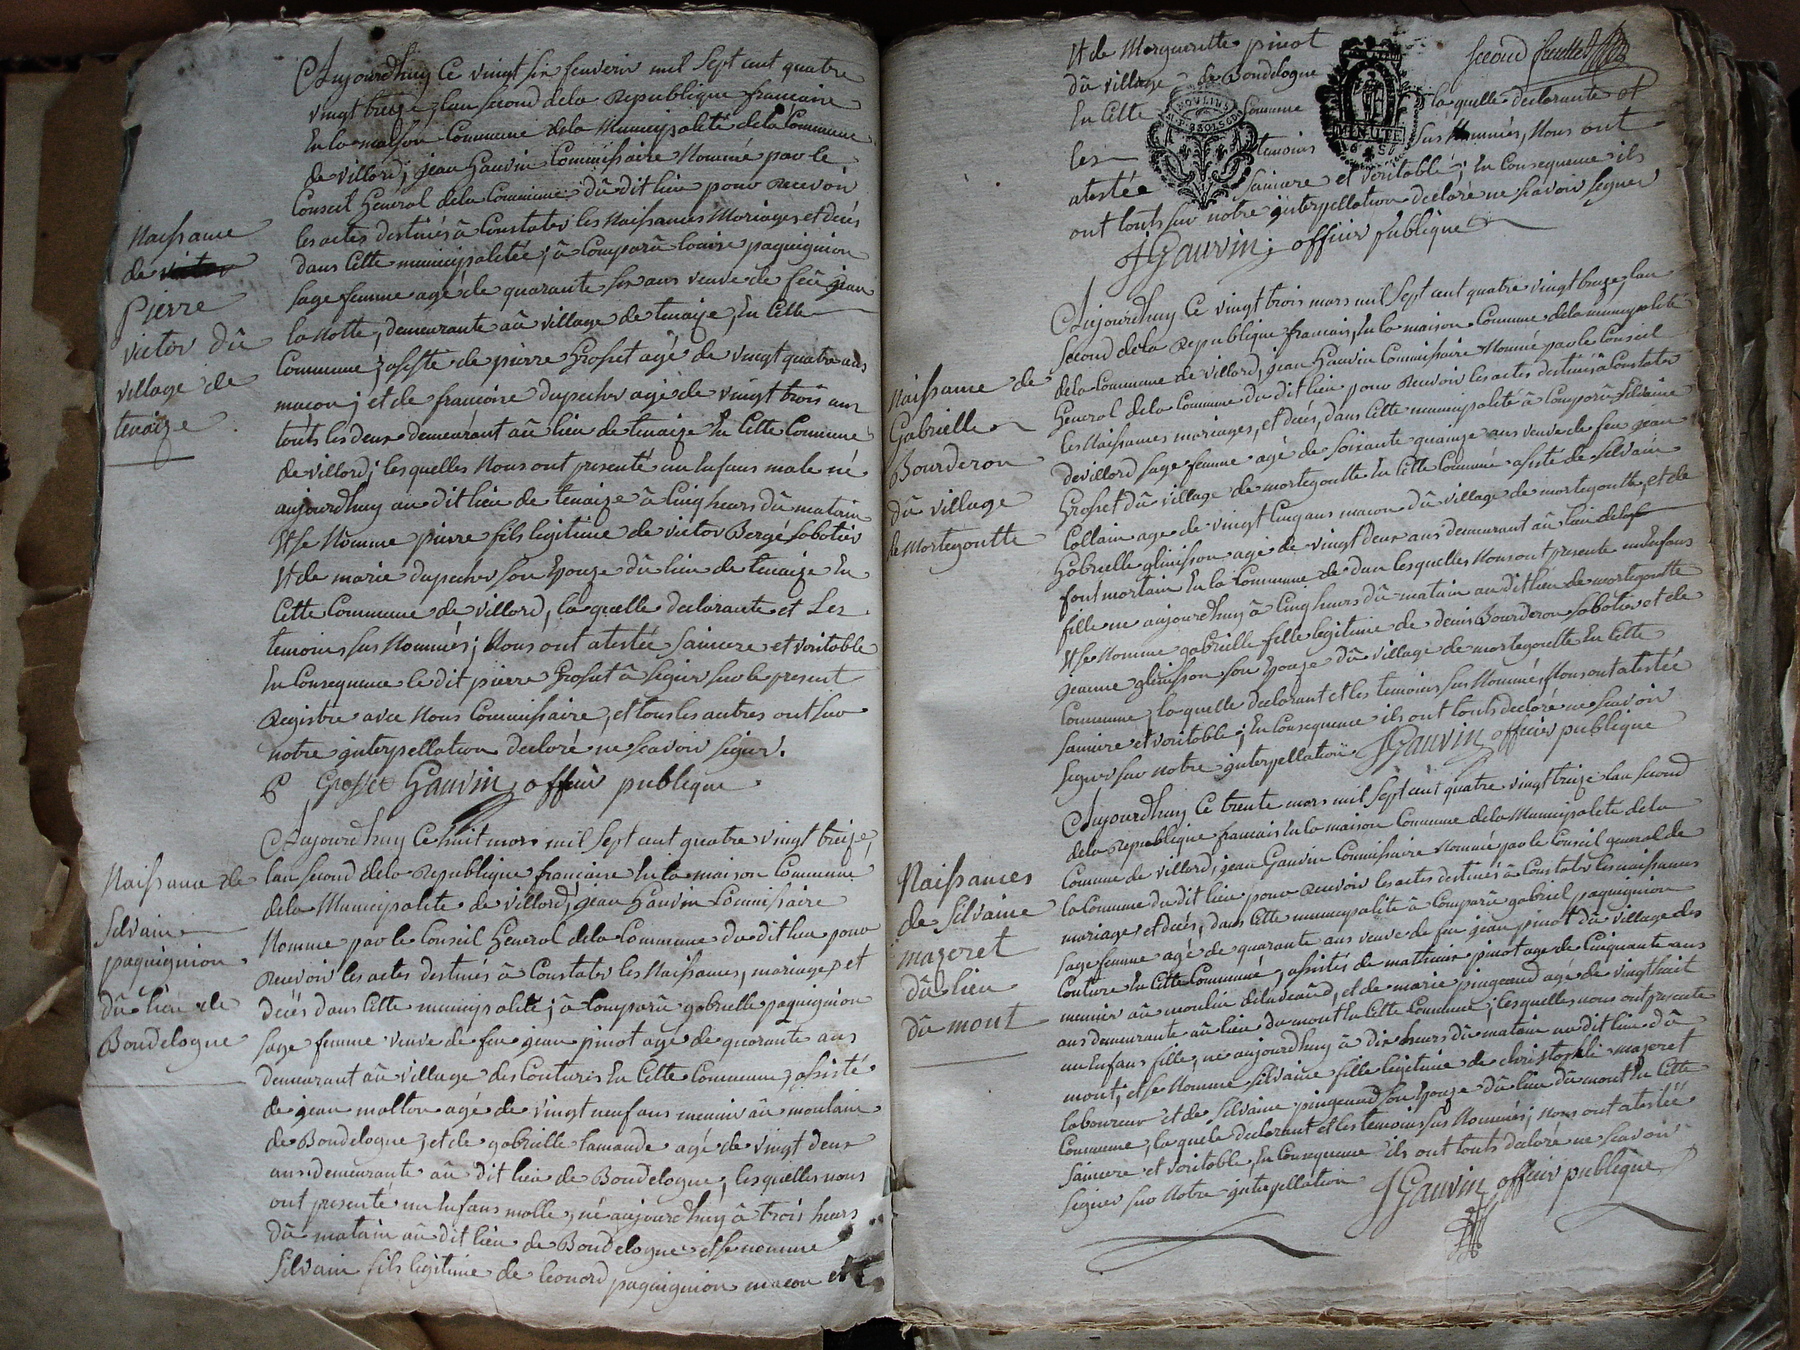 Aujourdhuy Ce vingt six fevverir mil Sept cent quatre
vingt treize, lan second dela Republique francaire
En la maison Commune dela Municipalité dela Commune
de villard; jean Gauvin Commissaire Nommé par le
Conseil General dela Commune dû dit lieu pour Recevoir
les actes destinés à Constater les Naissances Mariages et decés
dans Cette municipalitée; à Comparû louise paquignion
Sage femme agé de quarante six ans veuve de feû jean
la Motte, demeurante aû village de tenaize, En Cette
Commune; assisté de pierre Grosset agé de vingt quatre ans
macon; et de francoise Dupecher agé de vingt trois ans
touts les deux demeurant aû lieu de tenaize En Cette Commune
de villard; lesquelles Nous ont presenté un Enfans male né
aujourdhuy au dit lieu de tenaize à Cinq heurs dû matain
Et Se Nomme pierre fils legitime de victor Bergé Sabotier
Et de marie dupecher Son Epouze dû lieu de tenaize En
Cette Commune de villard, la quelle declarante et Les
temoins sus Nommés; Nous ont atestée Saincere et veritable
En Consequence le dit pierre Grosset à Signer sur le present
Registre avec Nous Commissaire, et tous les autres ont sur
notre interpellation declaré ne scavoir signer.
P Grosset Gauvin, officir publique
Naissance
de
Pierre
victor dû
village de
tenaize
Aujourdhuy Ce huit mars mil Sept cent quatre vingt treize,
lan second dela Republique francaire En la maison Commune
dela Municipalité de villard, jean Gauvin Commissaire
Nomme par le Conseil General dela Commune du dit lieu pour
Recevoir les actes destinés à Constater les Naissances, mariages et
decés dans Cette municipalité; à Comparû gabrielle paquignion
Sage femme veuve de feu jean pinot age de quarante ans
demeurant aû village des Coutures En Cette Commune, assisté
de jean malton agé de vingt neuf ans meunir aû moulain
de Boudelogne; et de gabrielle lamaude agé de vingt deux
ans demeurante aû dit lieu de Boudelogne, lesquelles nous
ont presente un Enfans malle, né aujourdhuy à trois heurs
dû matain aû dit lieu de Boudelogne et se nomme
Silvain fils legitime de leonard paquignion macon et
Naissance de
Silvain
paquignion
dû lieu de
Boudelogne
Et de Marguerite pinot
dû village de Boudelogne
En Cette Commune
la quelle declarante et
les temoins sus Nommés, Nous ont
atestée Saincere et veritable; En Consequence ils
ont touts sur notre interpellation declaré ne scavoir signer
JGauvin; officir publique
second feuillet
MOULINS
MINUTE
Aujourdhuy Ce vingt trois mars mil Sept cent quatre vingt treize, lan
second dela Republique francais, En la maison Commune dela municipalité
dela Commune de villard, jean Gauvin Commissaire Nommé par le Conseil
General dela Commune du dit lieu pour Recevoir les actes destinés à Constater
les Naissances mariages, et decés, dans Cette municipalité à Comparû Silvaine
devillard Sage femme agé de soixante quainze ans veuve de feu jean
Grosset dû village de mortegoutte En Cette Commune assisté de Silvain
Collain age de vingt Cinq ans macon dû village de mortegoutte, et de
Gabrielle glenisson age de vingt deux ans demeurant aû lieu de la
font mortain En la Commune de dun lesquelles Nous ont presente un Enfans
fille ne aujourdhuy à Cinq heurs dû matain au dit lieu de mortegoutte
Et se Nomme gabrielle fille legitime de denis Bourderon Sabotier et de
jeanne glenisson son Epouze dû village de mortegoutte En Cette
Commune, la quelle declarant et les temoins sus Nommé Nous ont atestée
Saincere et veritable; En Consequence ils ont touts declaré ne scavoir
signer sur notre interpellation JGauvin officir publique
Naissance de
Gabrielle
Bourderon
dû village
de Mortegoutte
Aujourdhuy Ce trente mars mil Sept cent quatre vingt treize lan second
dela Republique francais En la maison Commune dela Municipalité dela
Commune de villard, jean Gauvin Commissaire Nommé par le Conseil general de
la Commune du dit lieu pour Recevoir les actes destinés à Constater les naissances
mariage, et decés, dans Cette municipalité à Comparû gabriel paquignion
Sage femme agé de quarante ans veuve de feu jean pinot dû village des
Couture En Cette Commune, assistés de mathieur pinot age de Cinquante ans
meunir aû moulin et de marie pingeaud agé de vingt huit
ans demeurante aû lieu du mont En Cette Commune; lesquelles nous ont presente
un Enfans fille, ne aujourdhuy à dix heurs dû matain au dit lieu dû
mont, et se Nomme Silvaine fille legitime de christophe mazeret
laboureur et de Silvaine pingeaud son Epouze dû lieu dû mont En Cette
Commune, la quele declarant et les temoins sus Nommés; nous ont atestée
Saincere et veritable, En Consequence ils ont touts declaré ne scavoir
signer sur Notre interpellation JGauvin officir publique
Naissances
de Silvaine
mazeret
dû lieu
dû mont